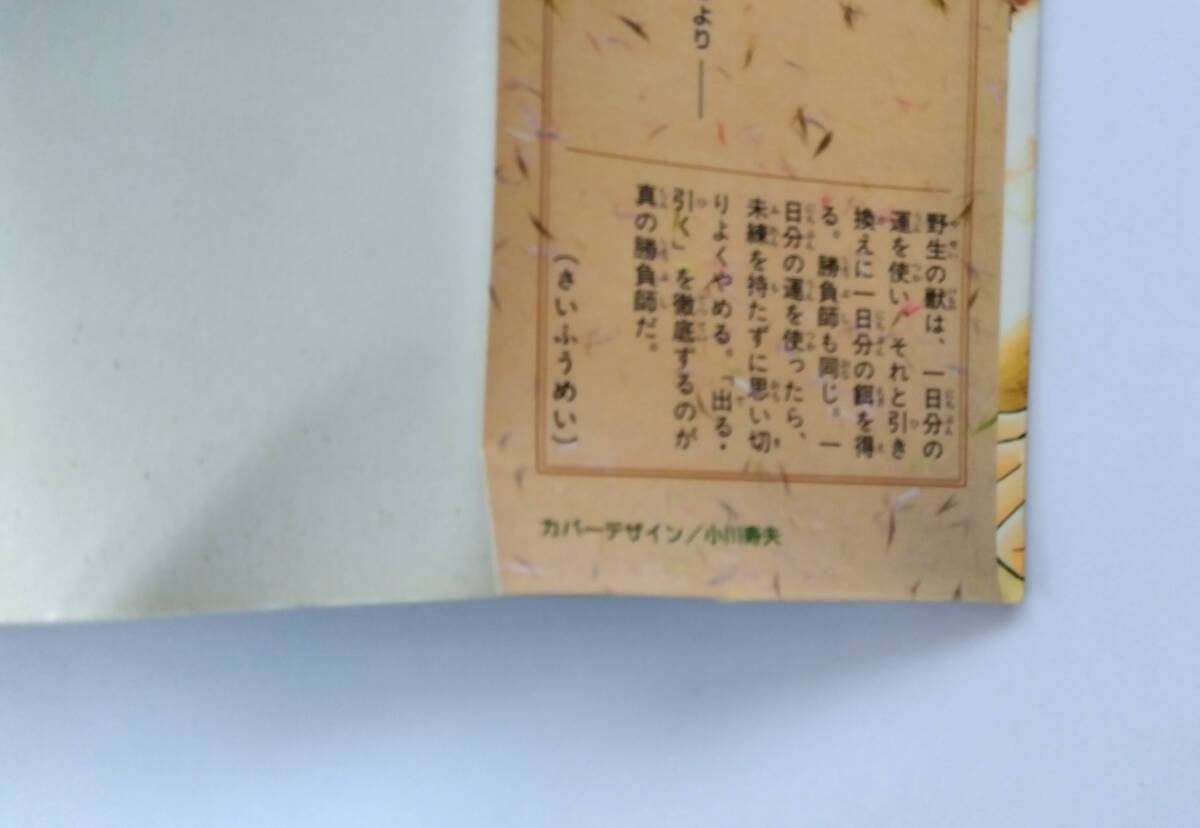 より――
野生の獣は、一日分の
運を使い、それと引き
換えに一日分の餌を得
る。勝負師も同じ。一
日分の運を使ったら、
未練を持たずに思い切
りよくやめる。「出る・
引く」を徹底するのが
真の勝負師だ。
(さいふうめい)
カバーデザイン/小川寿夫